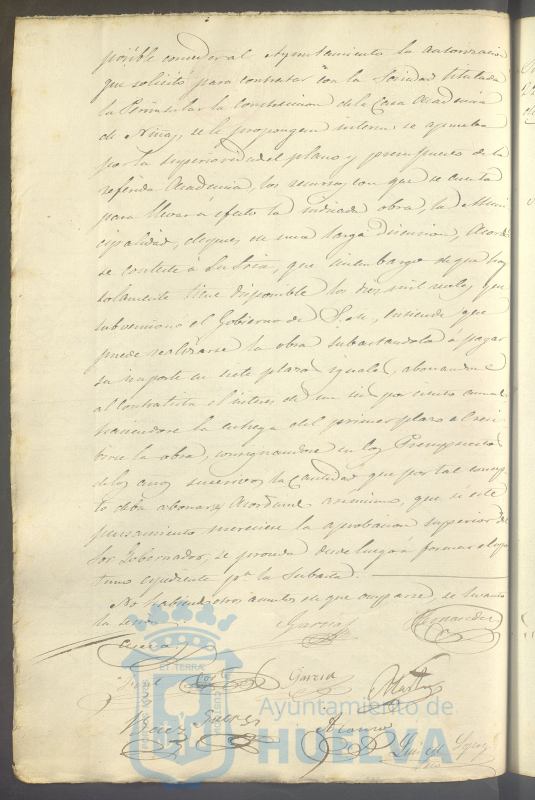 posible conceder al Ayuntamiento la autorizacion
que solicitó para contratar con la Sociedad titulada
la Peninsular la construccion de la Casa Academia
de Niñas, se le propongan interin se aprueba
por la superioridad el plano y presupuesto de la
referida Academia, los recursos con que se cuenta
para llevar á efecto la indicada obra, la Muni
cipalidad, despues de una larga discusion, Acordó
se conteste á Su Sria, que sin embargo de que hoy
solamente tiene disponible los diez mil reales que
subvencionó el Gobierno de S. M., entiende que
puede realizarse la obra subastandola á pagar
su importe en siete plazos iguales, abonandose
al contratista el interes de un seis por ciento anual
haciendose la entrega del primer plazo al reci
birse la obra, consignandose en los Presupuestos
de los años sucesivos la cantidad que por tal concep
to deba abonarse. Acordaron asimismo, que si este
pensamiento mereciese la aprobacion superior del
Sor. Gobernador, se proceda desde luego á formar el opor
tuno espediente pa. la subasta.
No habiendo otros asuntos de que ocuparse, se levantó
la sesion.
Garcia Hernandez
Garcia Martin
Suarez
Ayuntamiento de
HUELVA